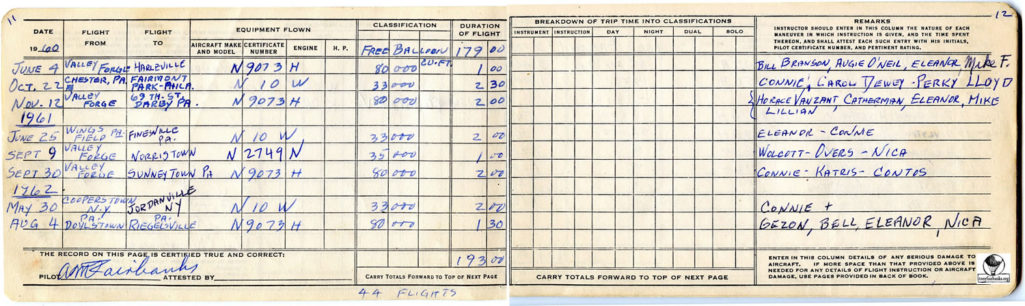 11
DATE
FLIGHT FROM
FLIGHT TO
EQUIPMENT FLOWN
CLASSIFICATION
DURATION OF FLIGHT
AIRCRAFT MAKE AND MODEL
CERTIFICATE NUMBER
ENGINE
H. P.
1960
FREE BALLOON
179 00
CU. FT.
JUNE 4 VALLEY FORGE HARLEVILLE N9073H 80 000 1 00
OCT. 22 CHESTER, PA. FAIRMONT PARK-PHILA. N 10 W 33 000 2 30
NOV. 12 VALLEY FORGE 69TH. ST. DARBY PA. N9073H 80 000 2 00
1961
JUNE 25 WINGS FIELD PA. FINESVILLE PA. N 10 W 33000 2 00
SEPT 9 VALLEY FORGE NORRISTOWN N 2749N 35 000 1 00
SEPT 30 VALLEY FORGE SUNNEYTOWN PA N9073H 80 000 2 00
1962
MAY 30 COOPERSTOWN N.Y. JORDANVILLE NY N 10 W 33 000 2 00
AUG 4 DOYLSTOWN PA. RIEGELSVILLE PA. N9073H 80 000 1 30
193 00
THE RECORD ON THIS PAGE IS CERTIFIED TRUE AND CORRECT:
PILOT AM Fairbanks ATTESTED BY
CARRY TOTALS FORWARD TO TOP OF NEXT PAGE
44 FLIGHTS
12
BREAKDOWN OF TRIP TIME INTO CLASSIFICATIONS
INSTRUMENT INSTRUCTION DAY NIGHT DUAL SOLO
REMARKS
INSTRUCTOR SHOULD ENTER IN THIS COLUMN THE NATURE OF EACH
MANEUVER IN WHICH INSTRUCTION IS GIVEN, AND THE TIME SPENT
THEREON, AND SHALL ATTEST EACH SUCH ENTRY WITH HIS INITIALS,
PILOT CERTIFICATE NUMBER, AND PERTINENT RATING.
BILL BRANSON, AUGIE O'NEIL, ELEANOR, MIKE F.
CONNIE, CAROL DEWEY - PERKY LLOYD
HORACE VANZANT, CATHERMAN, ELEANOR, MIKE
LILLIAN
ELEANOR - CONNIE
WOLCOTT - DVERS - NICA
CONNIE - KATRIS - CONTOS
CONNIE +
GEZON, BELL, ELEANOR, NICA
CARRY TOTALS FORWARD TO TOP OF NEXT PAGE
ENTER IN THIS COLUMN DETAILS OF ANY SERIOUS DAMAGE TO
AIRCRAFT. IF MORE SPACE THAN THAT PROVIDED ABOVE IS
NEEDED FOR ANY DETAILS OF FLIGHT INSTRUCTION OR AIRCRAFT
DAMAGE, USE PAGES PROVIDED IN BACK OF BOOK.